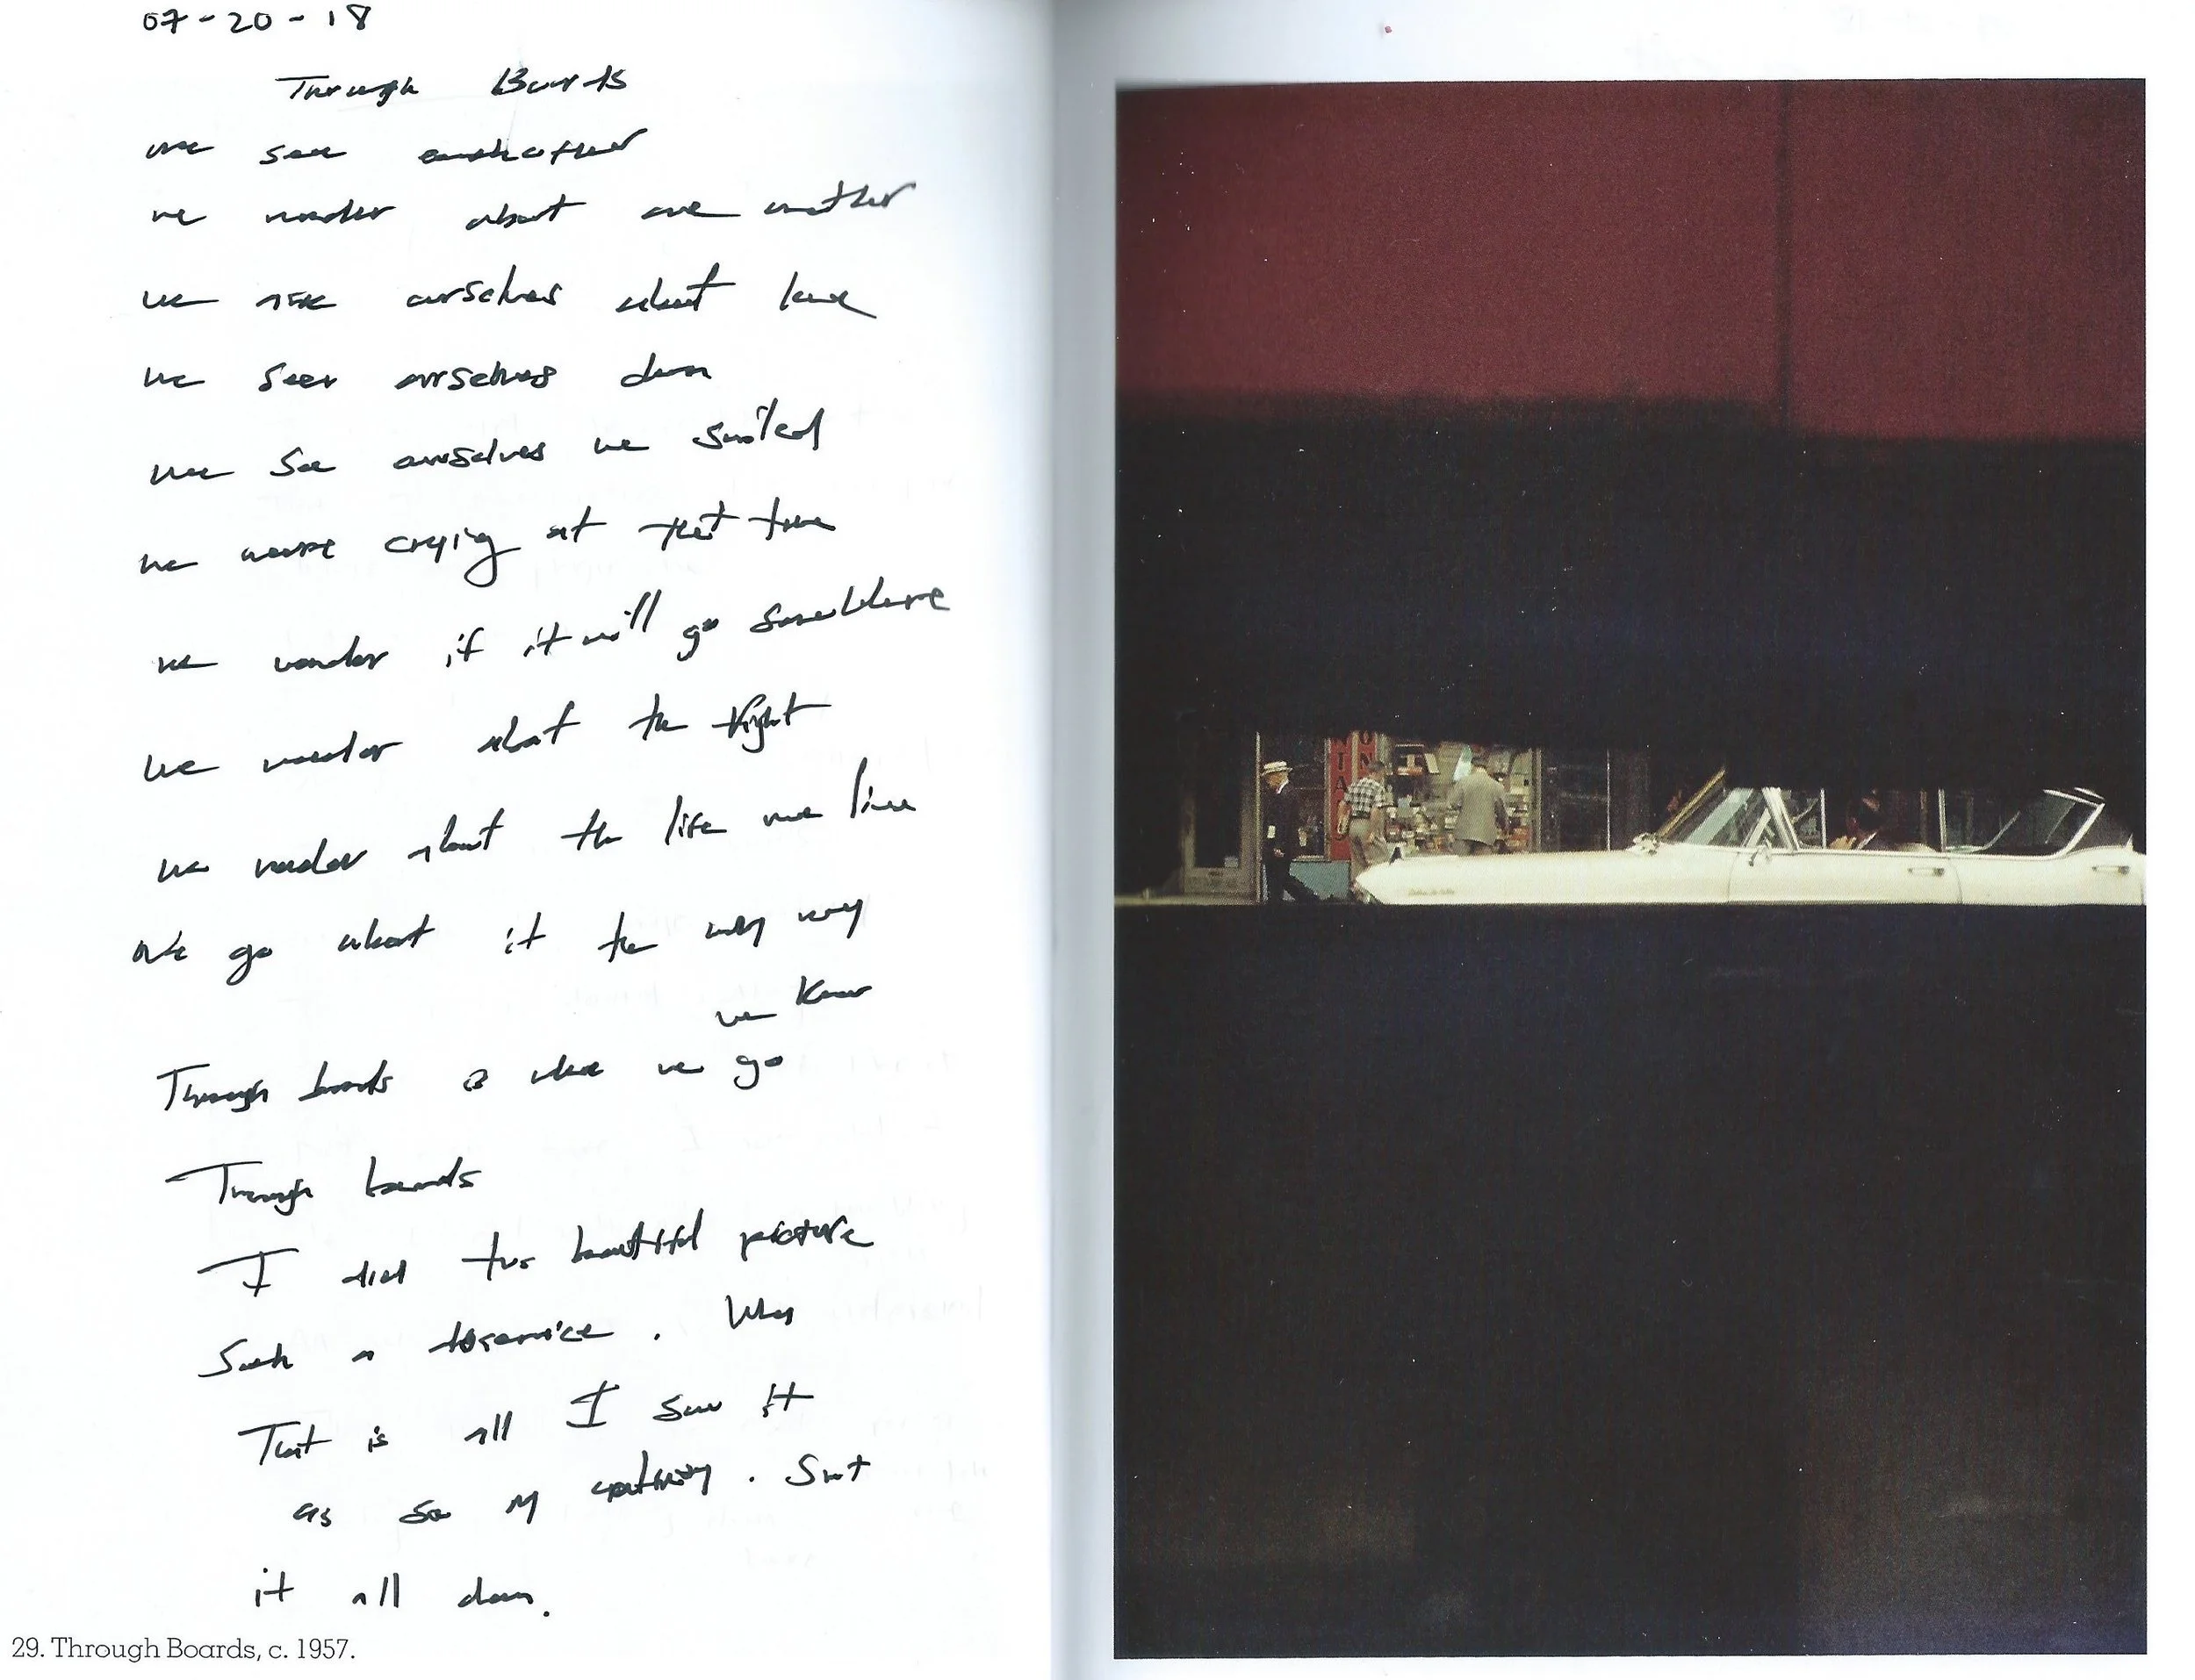 07-20-18
Through Boards
we see eachother
we wonder about one another
we ask ourselves about love
we seer ourselves down
we see ourselves we smiled
we were crying at that time
we wonder if it will go somewhere
we wonder about the
we wonder about the life we live
we go about it the only way
we know
Through boards is where we go
Through boards
I did this beautiful picture
Such a disservice. Why
That is all I saw it
as so my. Shut
it all down.
29. Through Boards, c. 1957.